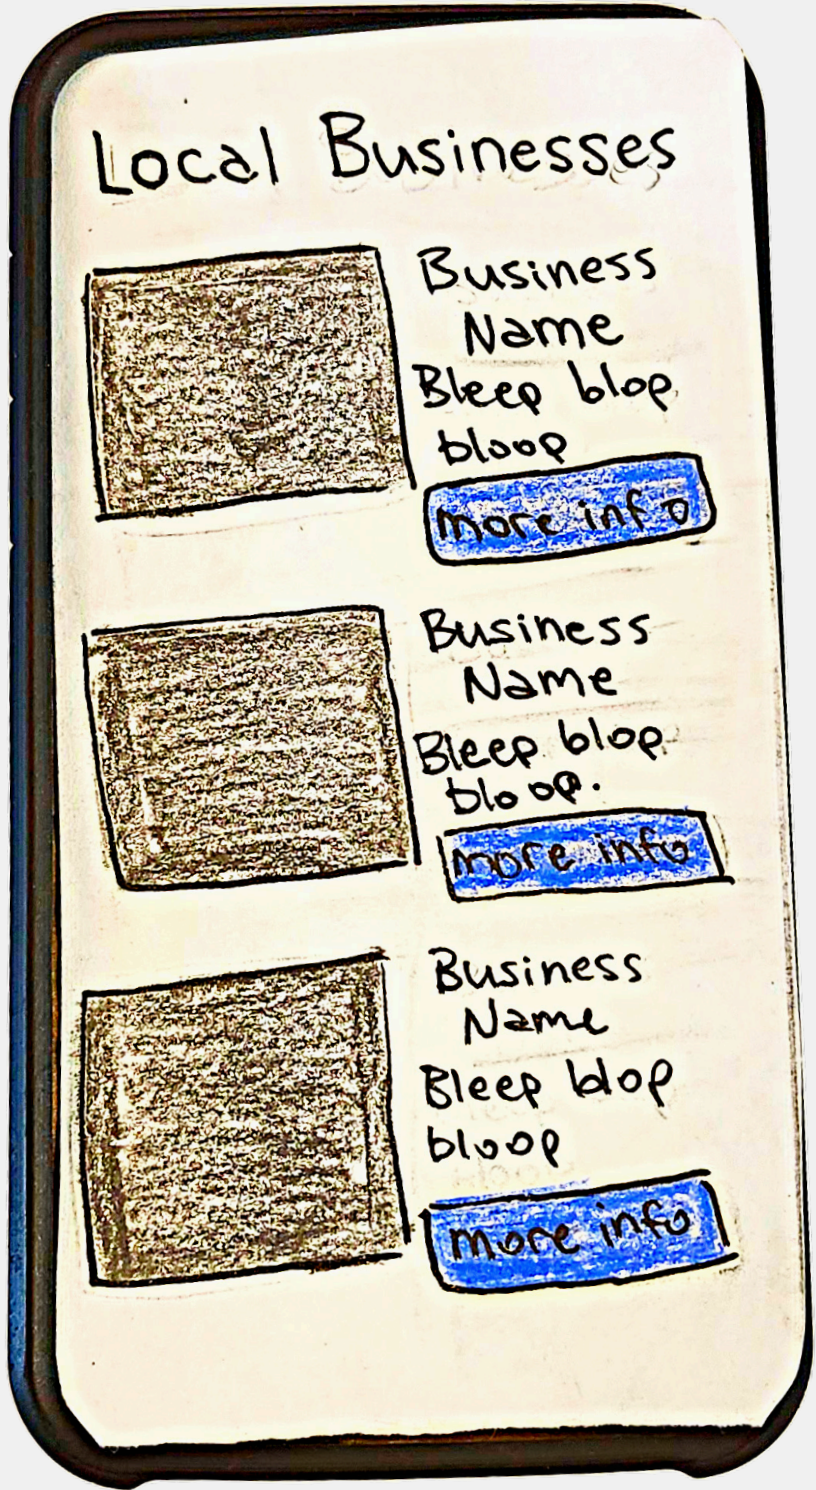 Local Businesses
Business
Name
Bleep blop
bloop
more info
Business
Name
Bleep blop
bloop.
more info
Business
Name
Bleep blop
bloop
more info